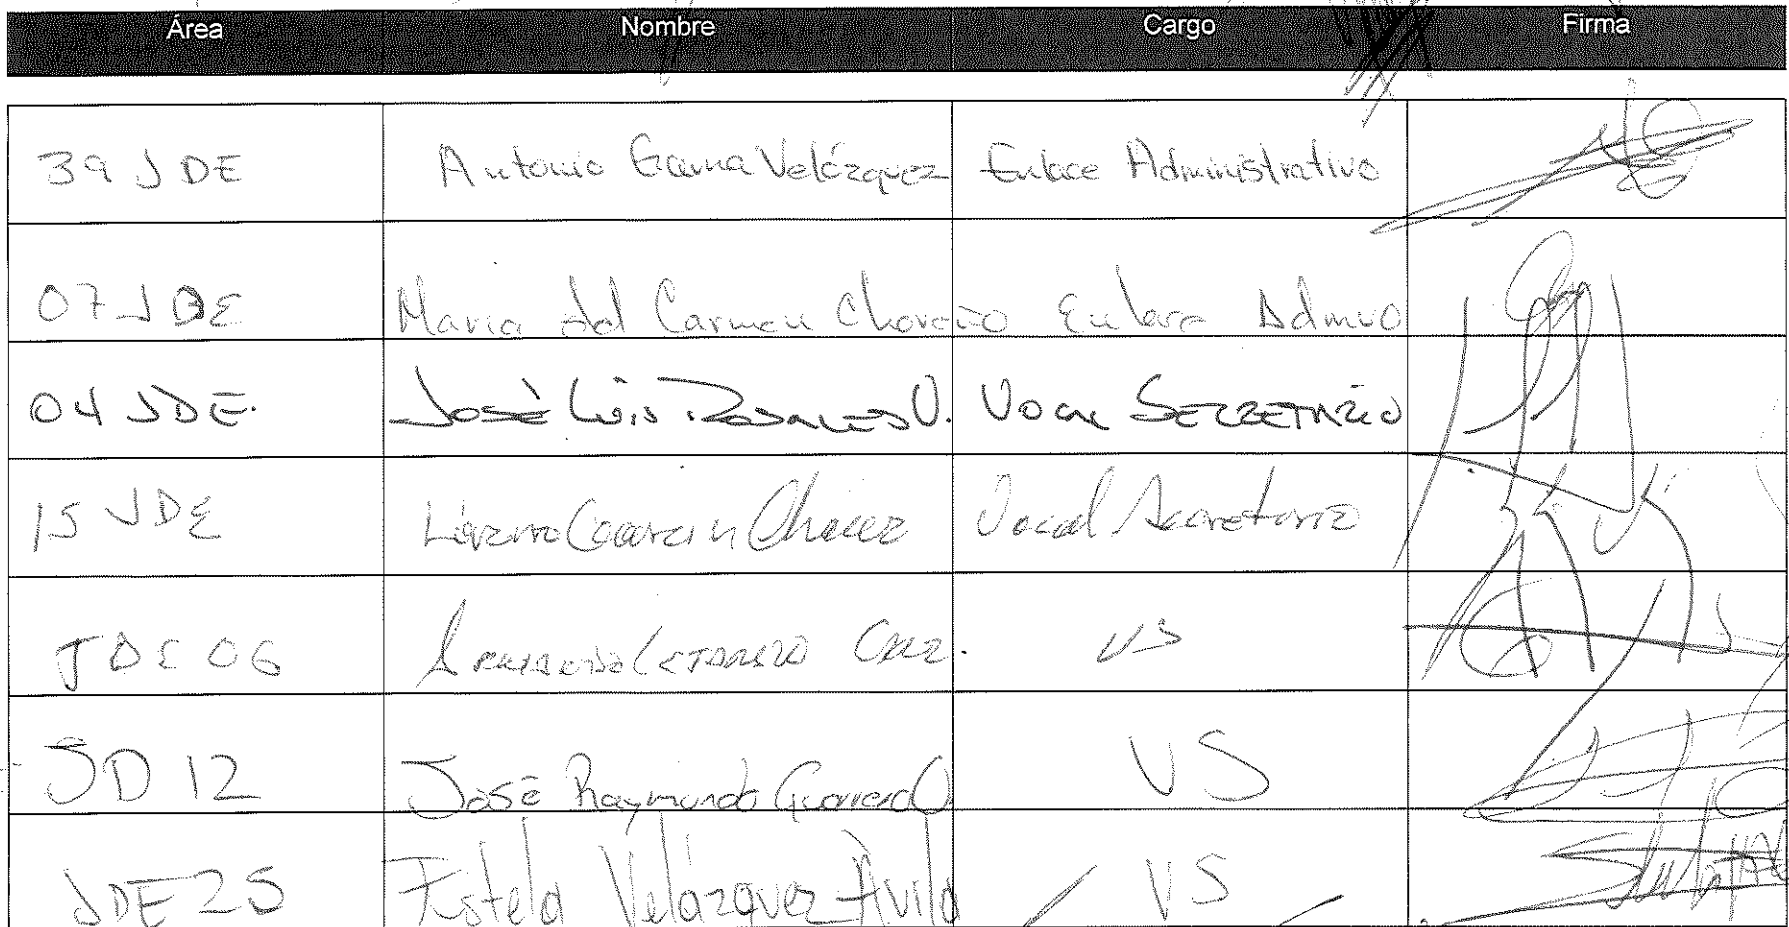 Área Nombre Cargo Firma
39 JDE Antonio Gama Velázquez Enlace Administrativo
07 JDE Maria del Carmen Choreño Enlace Admvo
04 JDE. José Luis Rosales V. Vocal SECRETARIO
15 JDE Chávez Vocal Secretario
JDE 06 VS
JD 12 José Raymundo Guerrero O. VS
JDE 25 Estela Velázquez Ávila VS